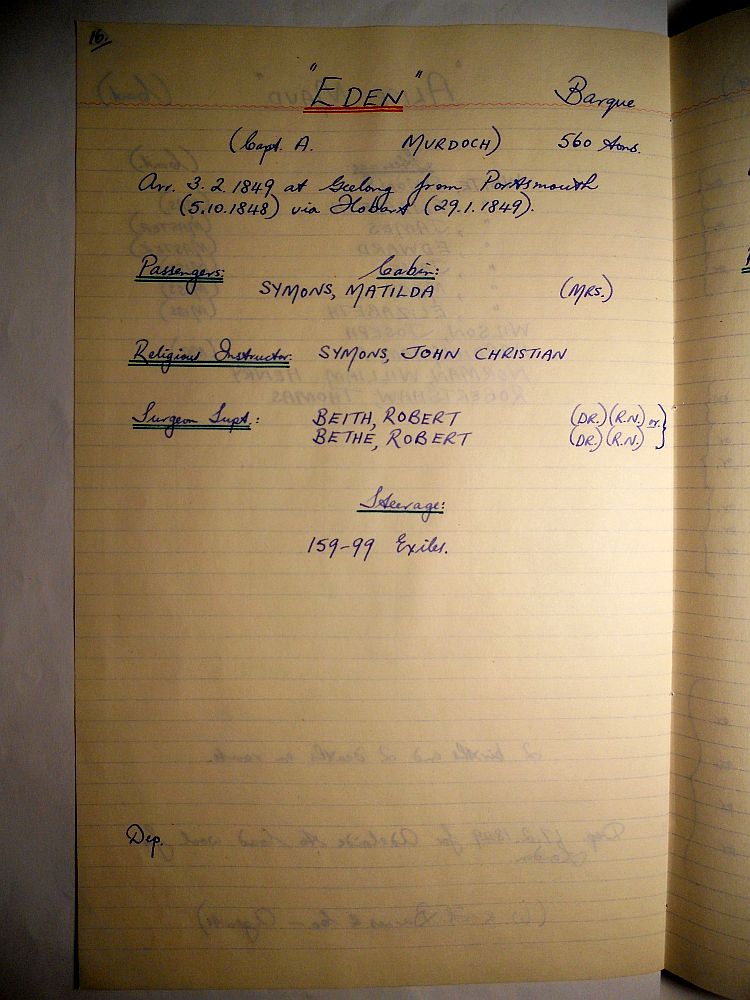 16.
"EDEN" Barque
(Capt. A. MURDOCH) 560 tons.
Arr. 3.2.1849 at Geelong from Portsmouth
(5.10.1848) via Hobart (29.1.1849).
Passengers: Cabin:
SYMONS, MATILDA (MRS.)
Religious Instructor: SYMONS, JOHN CHRISTIAN
Surgeon Supt.: BEITH, ROBERT (DR.)(R.N.) or }
BETHE, ROBERT (DR.)(R.N.)
Steerage:
159-99 Exiles.
Dep.